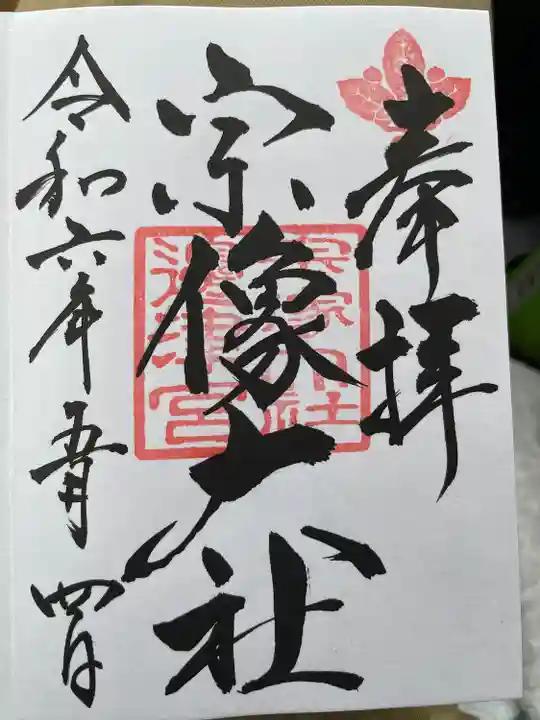 奉拝
宗像大社
宗像大社
邊津宮
令和六年五月四日